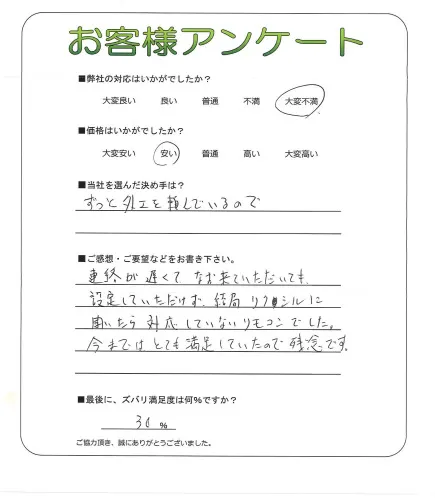 お客様アンケート
■弊社の対応はいかがでしたか？
大変良い 良い 普通 不満 大変不満
■価格はいかがでしたか？
大変安い 安い 普通 高い 大変高い
■当社を選んだ決め手は？
ずっと外工を頼んでいるので
■ご感想・ご要望などをお書き下さい。
連絡が遅くて なお来ていただいても、
設定していただけず、結局 リクシルに
聞いたら 対応していないリモコンでした。
今まではとても満足していたので残念です。
■最後に、ズバリ満足度は何%ですか？
30 %
ご協力頂き、誠にありがとうございました。